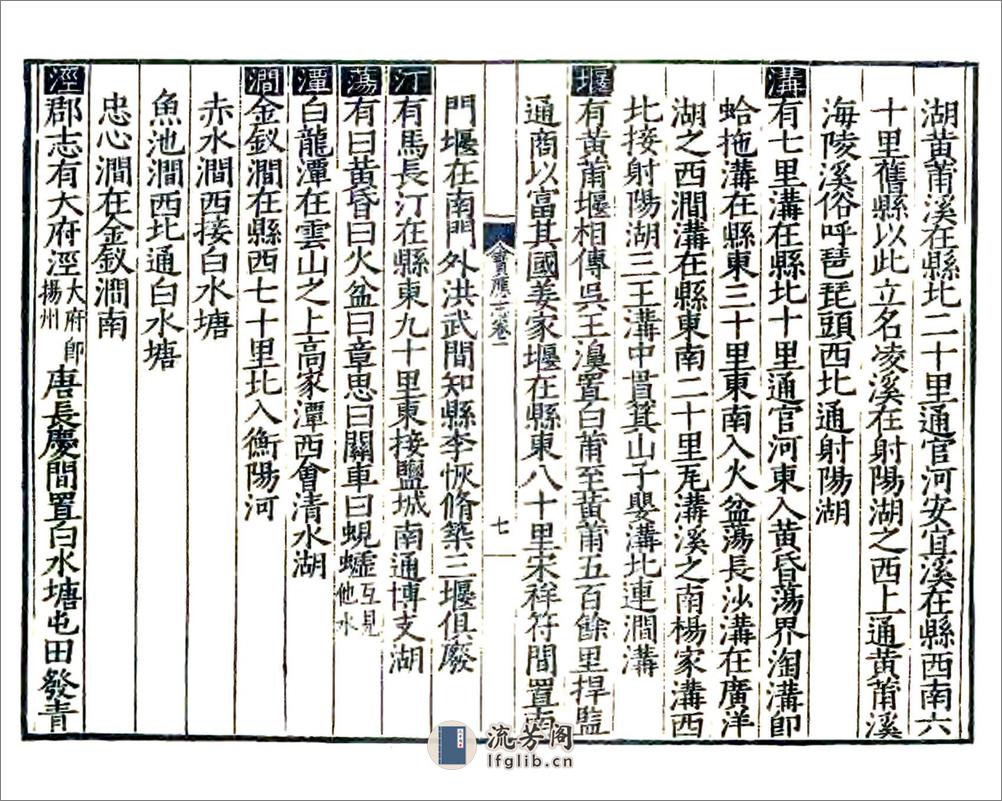 湖黃莆溪在縣北二十里通官河安宜溪在縣西南六
十里舊縣以此立名凌溪在射陽湖之西上通黃莆溪
海陵溪俗呼琵琶頭西北通射陽湖
溝有七里溝在縣北十里通官河東入黃昏蕩界淘溝即
蛤拖溝在縣東三十里東南入火盆蕩長沙溝在廣洋
湖之西澗溝在縣東南二十里瓦溝溪之南楊家溝西
北接射陽湖三王溝中貫箕山子嬰溝北連澗溝
堰有黃莆堰相傳吳王濞置白莆至黃莆五百餘里捍監
通商以富其國姜家堰在縣東八十里宋祥符間置南
寶應志卷一
七
門堰在南門外洪武間知縣李恢脩築三堰俱廢
汀有馬長汀在縣東九十里東接鹽城南通博支湖
蕩有曰黃昏曰火盆曰章思曰關車曰蜆蟶互見他水
潭白龍潭在雲山之上高家潭西會清水湖
澗金釵澗在縣西七十里北入衡陽河
赤水澗西接白水塘
魚池澗西北通白水塘
忠心澗在金釵澗南
涇郡志有大府涇大府即揚州唐長慶間置白水塘屯田發青
流芳阁
lfglib.cn